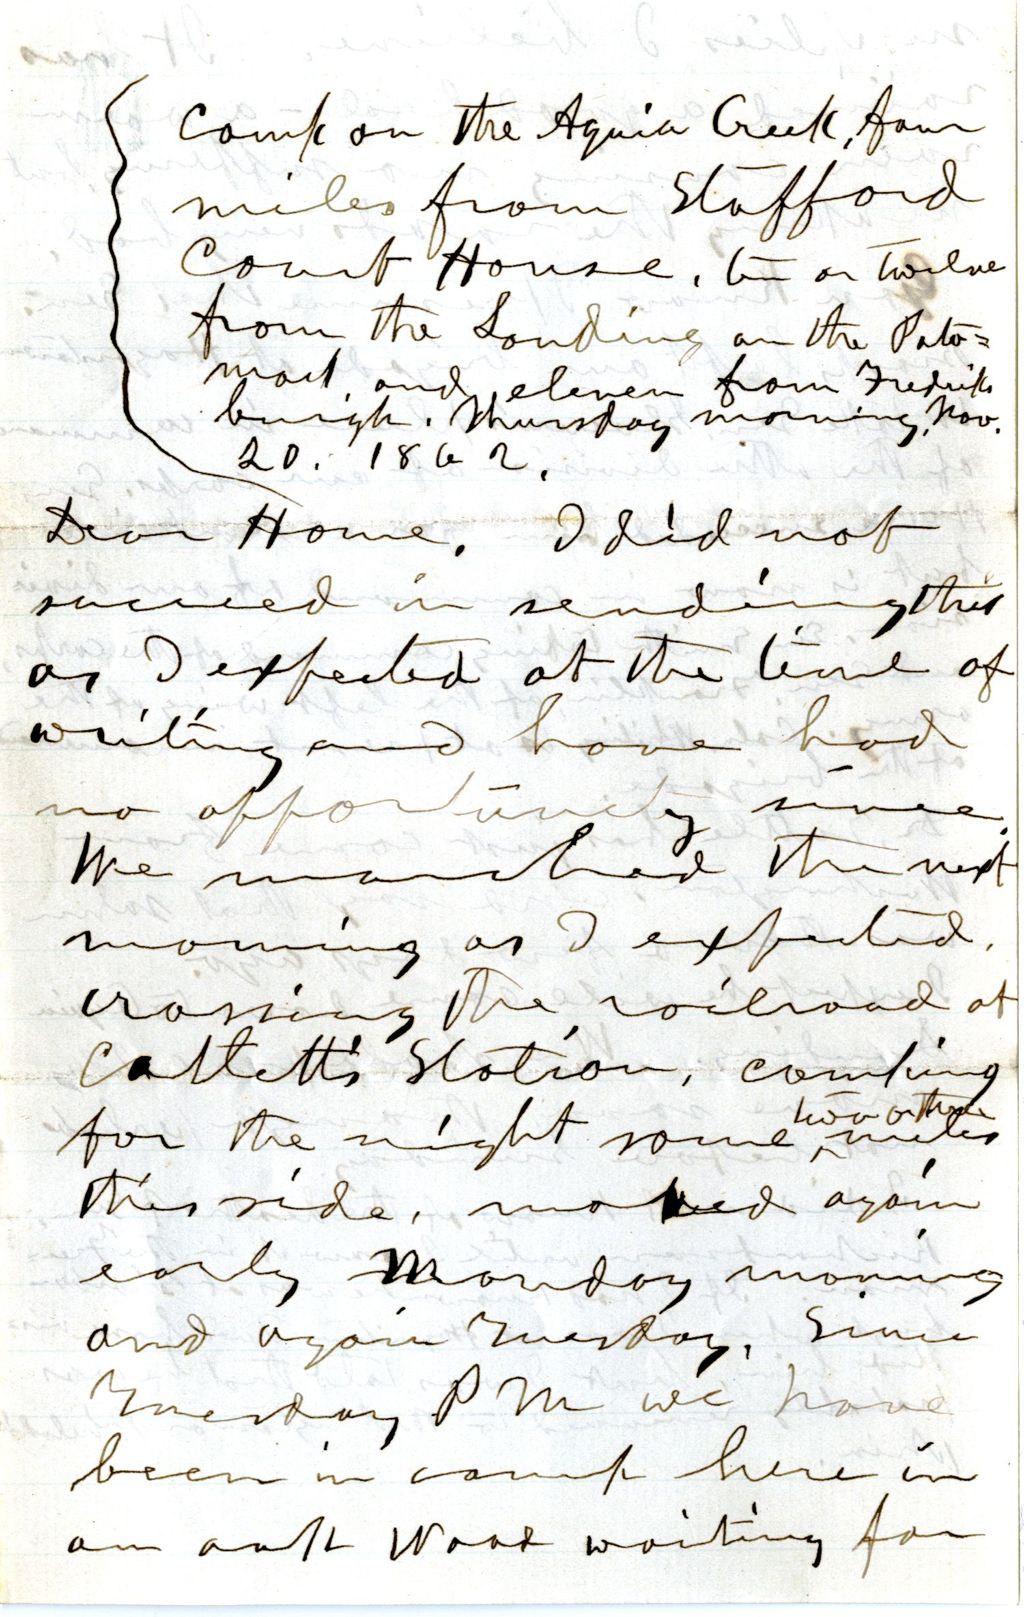 Camp on the Aquia Creek, four
miles from Stafford
Court House, ten or twelve
from the Landing on the Poto=
mack and eleven from Fredricks
burigh. Thursday morning, Nov.
20. 1862.
Dear Home. I did not
succeed in sending this
as I expected at the time of
writing and have had
no opportunity since.
We marched the next
morning as I expected,
crossing the railroad at
Catlett's Station, camping
for the night some two or three miles
this side, moved again
early Monday morning
and again Tuesday. Since
Tuesday P M we have
been in camp here in
an oak wood waiting for